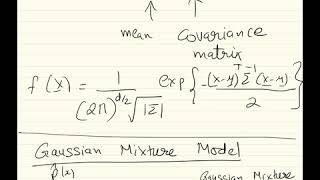 mean covariance
matrix
f(x) = 1 / ((2π)^{d/2} √|Σ|) exp{ -(x-μ)^T Σ^{-1} (x-μ) / 2 }
Gaussian Mixture Model
p̂(x) Gaussian Mixture